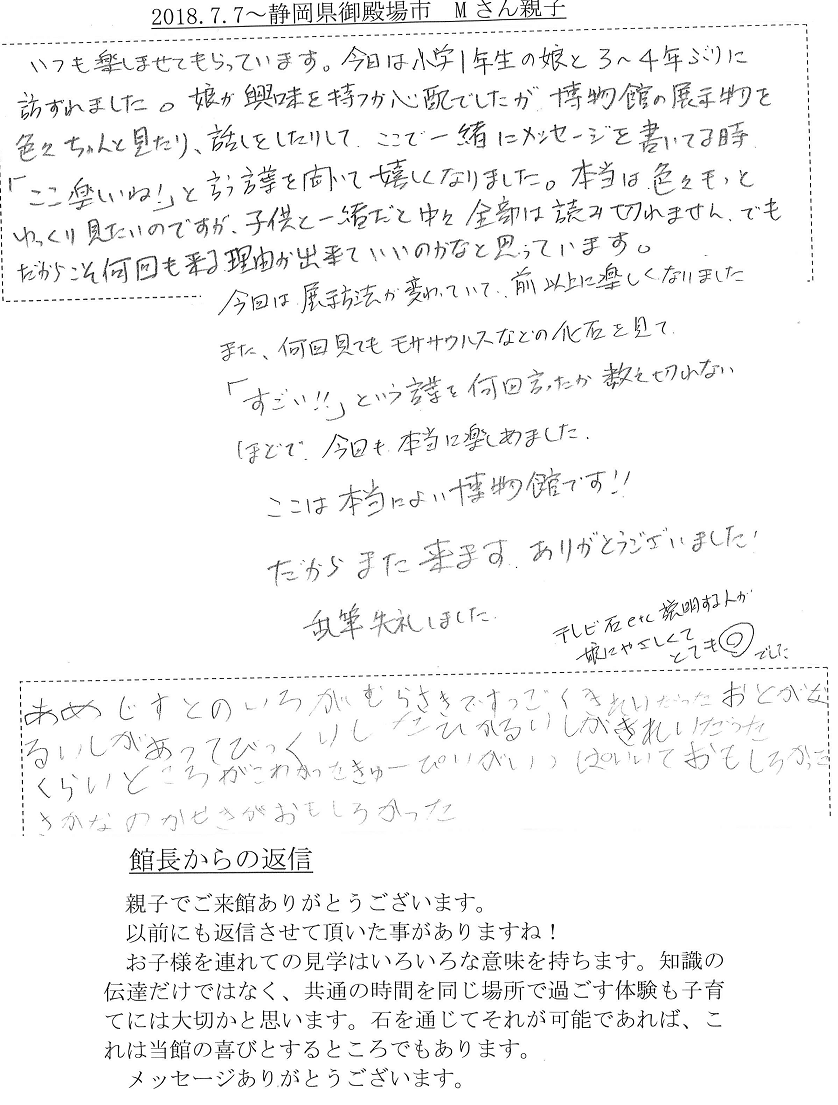 2018.7.7～静岡県御殿場市　Mさん親子
いつも楽しませてもらっています。今日は小学1年生の娘と3～4年ぶりに
訪ずれました。娘が興味を持つか心配でしたが 博物館の展示物を
色々ちゃんと見たり、話しをしたりして、ここで一緒にメッセージを書いてる時
「ここ楽しいね!」と言う言葉を聞いて嬉しくなりました。本当は色々もっと
ゆっくり見たいのですが、子供と一緒だと中々全部は読み切れません、でも
だからこそ何回も来る理由が出来ていいのかなと思っています。
今回は展示方法が変わっていて、前以上に楽しくなりました
また、何回見てもモササウルスなどの化石を見て
「すごい!!」という言葉を何回言ったか数え切れない
ほどで、今回も本当に楽しめました。
ここは本当によい博物館です!!
だからまた来ます。ありがとうございました!
乱筆失礼しました
テレビ石etc説明する人が
娘にやさしくて
とても◎でした
あめじすとのいろがむらさきですっごくきれいだった おとがな
るいしがあってびっくりした ひかるいしがきれいだった
くらいところがこわかったきゅーぴいがいっぱいいておもしろかった
さかなのかせきがおもしろかった
館長からの返信
親子でご来館ありがとうございます。
以前にも返信させて頂いた事がありますね！
お子様を連れての見学はいろいろな意味を持ちます。知識の
伝達だけではなく、共通の時間を同じ場所で過ごす体験も子育
てには大切かと思います。石を通じてそれが可能であれば、こ
れは当館の喜びとするところでもあります。
メッセージありがとうございます。